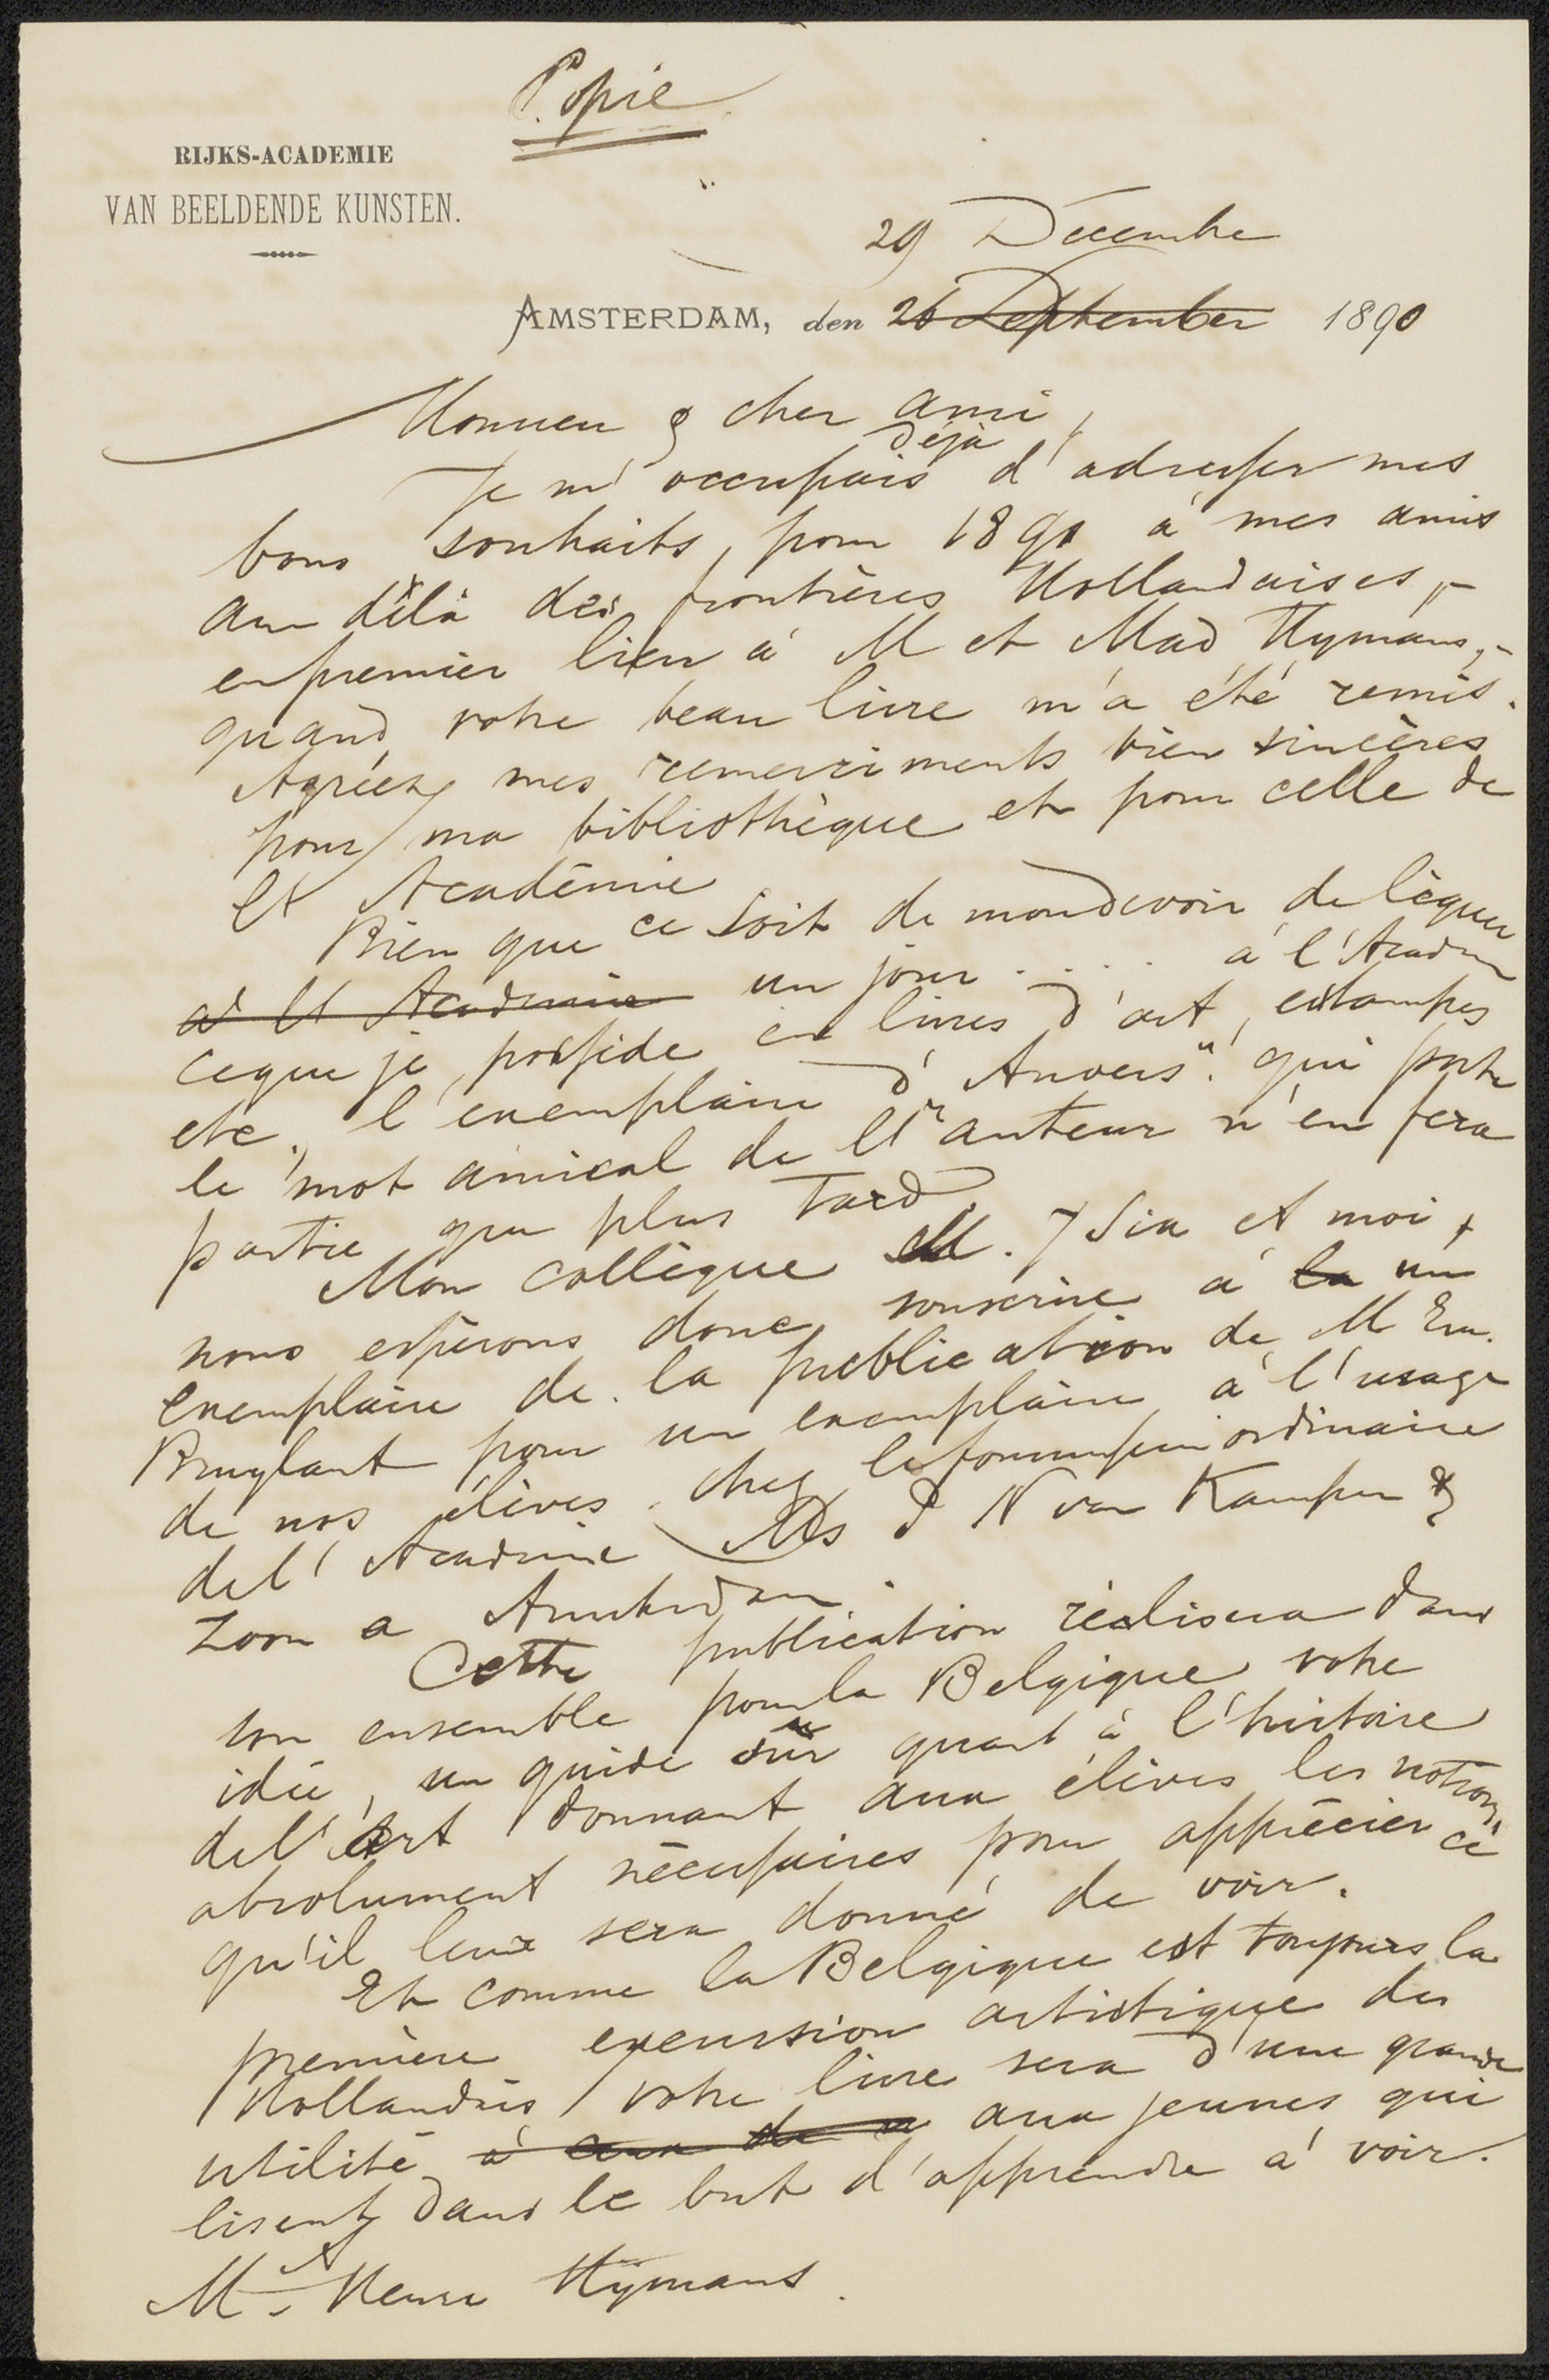 Copie
RIJKS-ACADEMIE
VAN BEELDENDE KUNSTEN.
29 Decembre
AMSTERDAM, den 26 September 1890
Monsieur & cher ami,
déjà
Je m'occupais d'adresser mes
bons souhaits, pour 1891 à mes amis
au délà des frontières Hollandaises,
en premier lieu à M et Mad Hymans,
quand votre beau livre m'a été remis.
Agréez mes remerciments bien sincères
pour ma bibliothèque et pour celle de
l'Académie
Bien que ce soit de mon devoir de léguer
à l'Academie un jour .... à l'Academie
ce que je possède en livres d'art, estampes
etc., l'exemplaire d'Anvers" qui porte
le mot amical de l'auteur n'en fera
partie que plus tard.
Mon collègue M. J Six et moi,
nous espérons donc souscrire à la un
exemplaire de la publication de M Em.
Bruylant pour un exemplaire à l'usage
de nos élèves chez le fournisseur ordinaire
de l'Academie Ms P N van Kampen &
Zoon a Amsterdam.
Cette publication réalisera dans
son ensemble pour la Belgique votre
idée, un guide sûr quant à l'histoire
de l'art donnant aux élèves les notions
absolument nécessaires pour apprécier ce
qu'il leur sera donné de voir.
Et comme la Belgique est toujours la
première excursion artistique des
Hollandais, votre livre sera d'une grande
utilité à ceux de aux jeunes qui
lisent dans le but d'apprendre à voir.
Mr Henri Hymans.